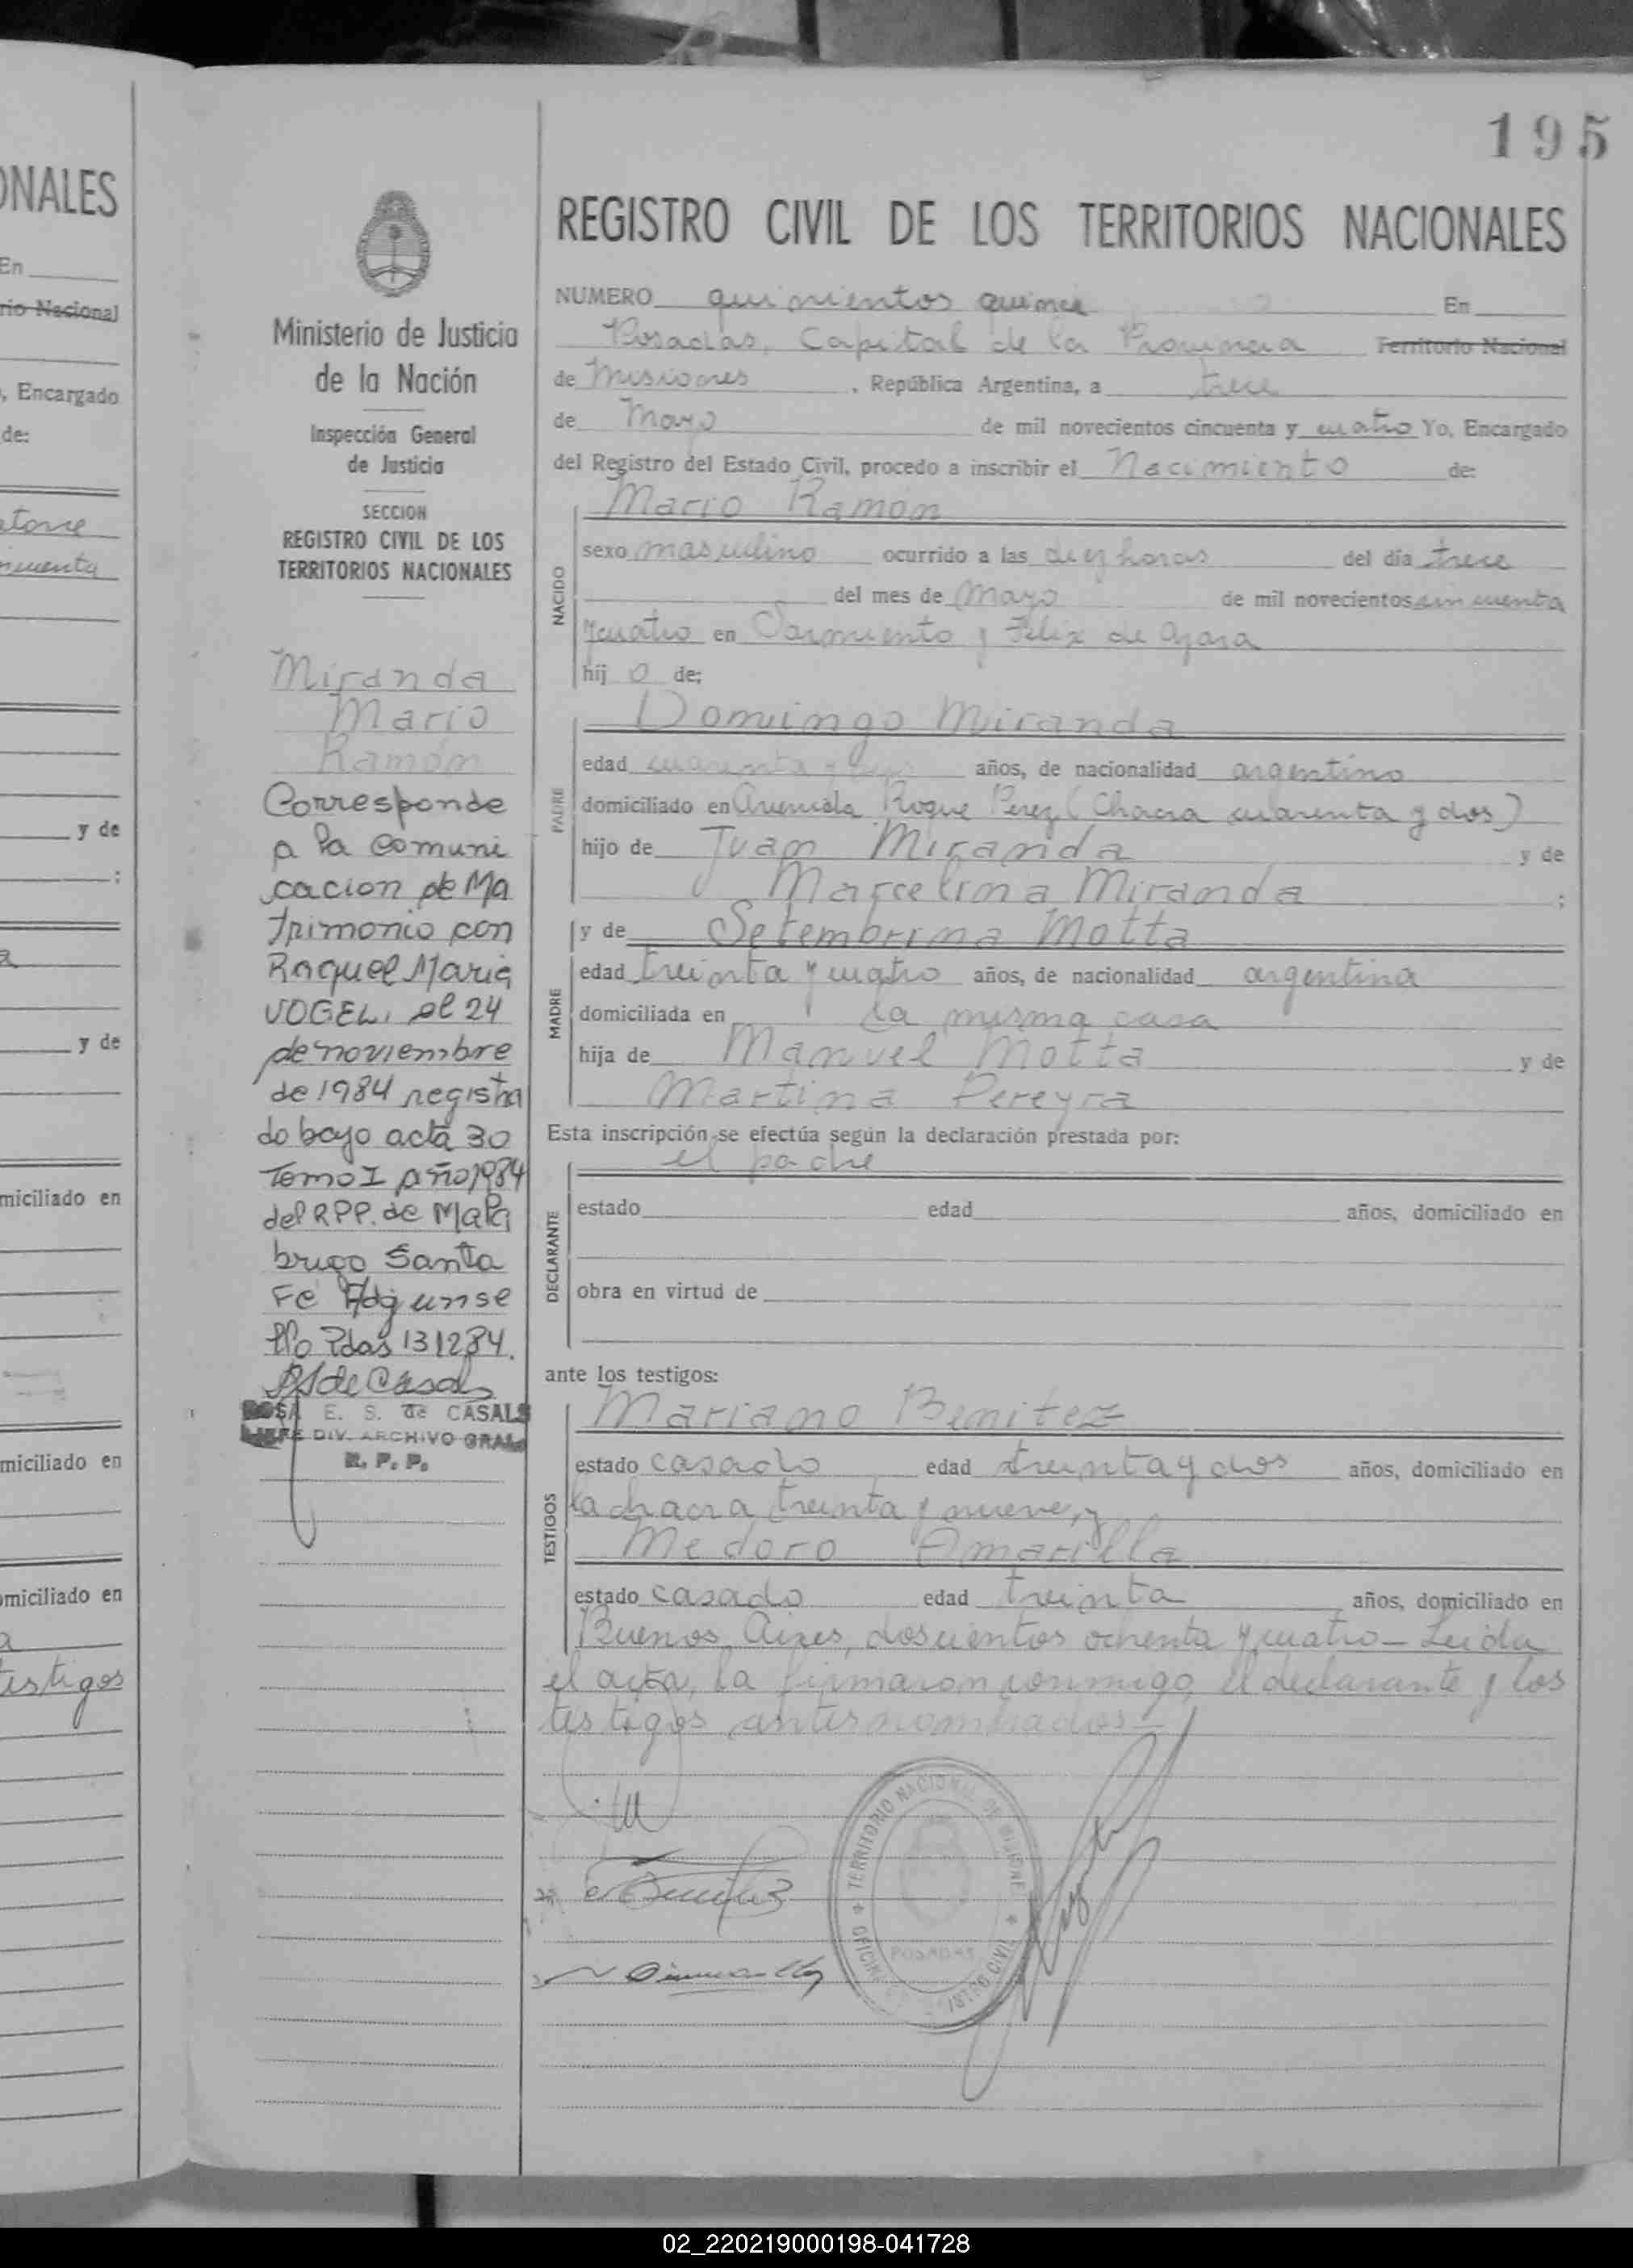 195
ONALES
En
rio Nacional
, Encargado
de:
y de
;
y de
miciliado en
miciliado en
omiciliado en
Ministerio de Justicia
de la Nación
Inspección General
de Justicia
SECCION
REGISTRO CIVIL DE LOS
TERRITORIOS NACIONALES
Miranda
Mario
Ramón
Corresponde
a la comuni
cacion de Ma
trimonio con
Raquel Maria
VOGEL, el 24
de noviembre
de 1984 registra
do bajo acta 30
Tomo I año 1984
del RPP. de Mala
brigo Santa
Fé
Pdas 131284.
RS de Casals
ROSA E. S. de CASALS
JEFE DIV. ARCHIVO GRAL
R. P. P.
REGISTRO CIVIL DE LOS TERRITORIOS NACIONALES
NUMERO quinientos quince En
Posadas, Capital de la Provincia Territorio Nacional
de Misiones, República Argentina, a trece
de Mayo de mil novecientos cincuenta y cuatro Yo, Encargado
del Registro del Estado Civil, procedo a inscribir el Nacimiento de:
Mario Ramon
NACIDO
sexo masculino ocurrido a las diez horas del día trece
del mes de Mayo de mil novecientos cincuenta
y cuatro en Sarmiento y Felix de Azara
hij o de;
Domingo Miranda
PADRE
edad cuarenta y años, de nacionalidad argentino
domiciliado en Avenida Roque Perez (Chacra cuarenta y dos)
hijo de Juan Miranda y de
Marcelina Miranda ;
y de Setembrina Motta
MADRE
edad treinta y cuatro años, de nacionalidad argentina
domiciliada en la misma casa
hija de Manuel Motta y de
Martina Pereyra
Esta inscripción se efectúa según la declaración prestada por:
el padre
DECLARANTE
estado edad años, domiciliado en
obra en virtud de
ante los testigos:
Mariano Benitez
TESTIGOS
estado casado edad treinta y dos años, domiciliado en
la chacra treinta y nueve, y
Medoro Amarilla
estado casado edad treinta años, domiciliado en
Buenos Aires, doscientos ochenta y cuatro - Leida
el acta, la firmaron conmigo, el declarante y los
testigos antes nombrados -
TERRITORIO NACIONAL DE MISIONES
POSADAS
02_220219000198-041728